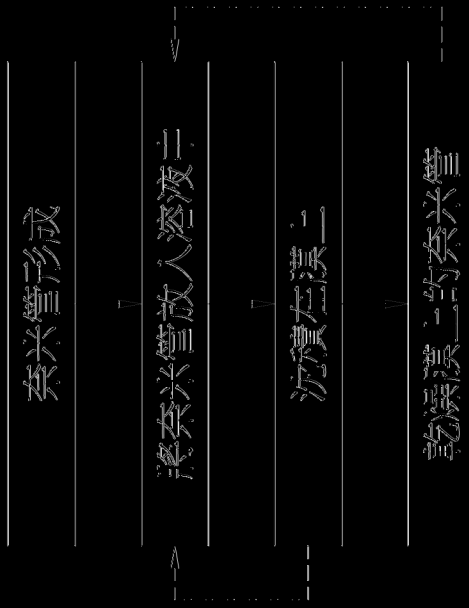 奈米管形成
將奈米管放入溶液中
沉積在膜上
乾燥膜上的奈米管